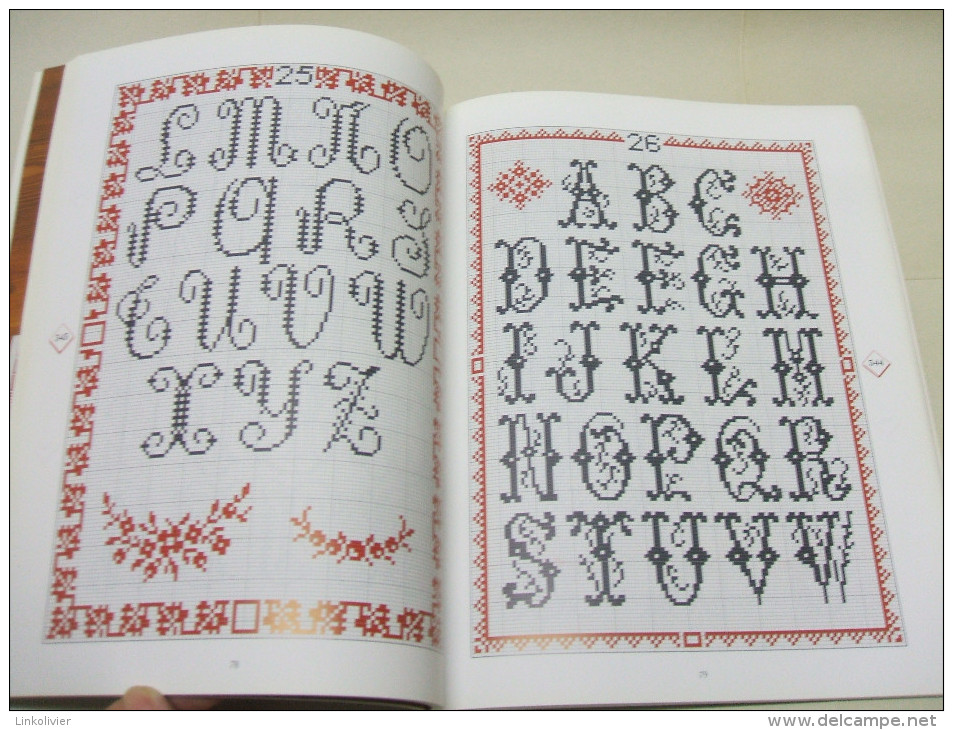 25
L M N O
P Q R S
T U V W
X Y Z
26
A B C
D E F G H
I J K L M
N O P Q R
S T U V W
Linkolivier
www.delcampe.net